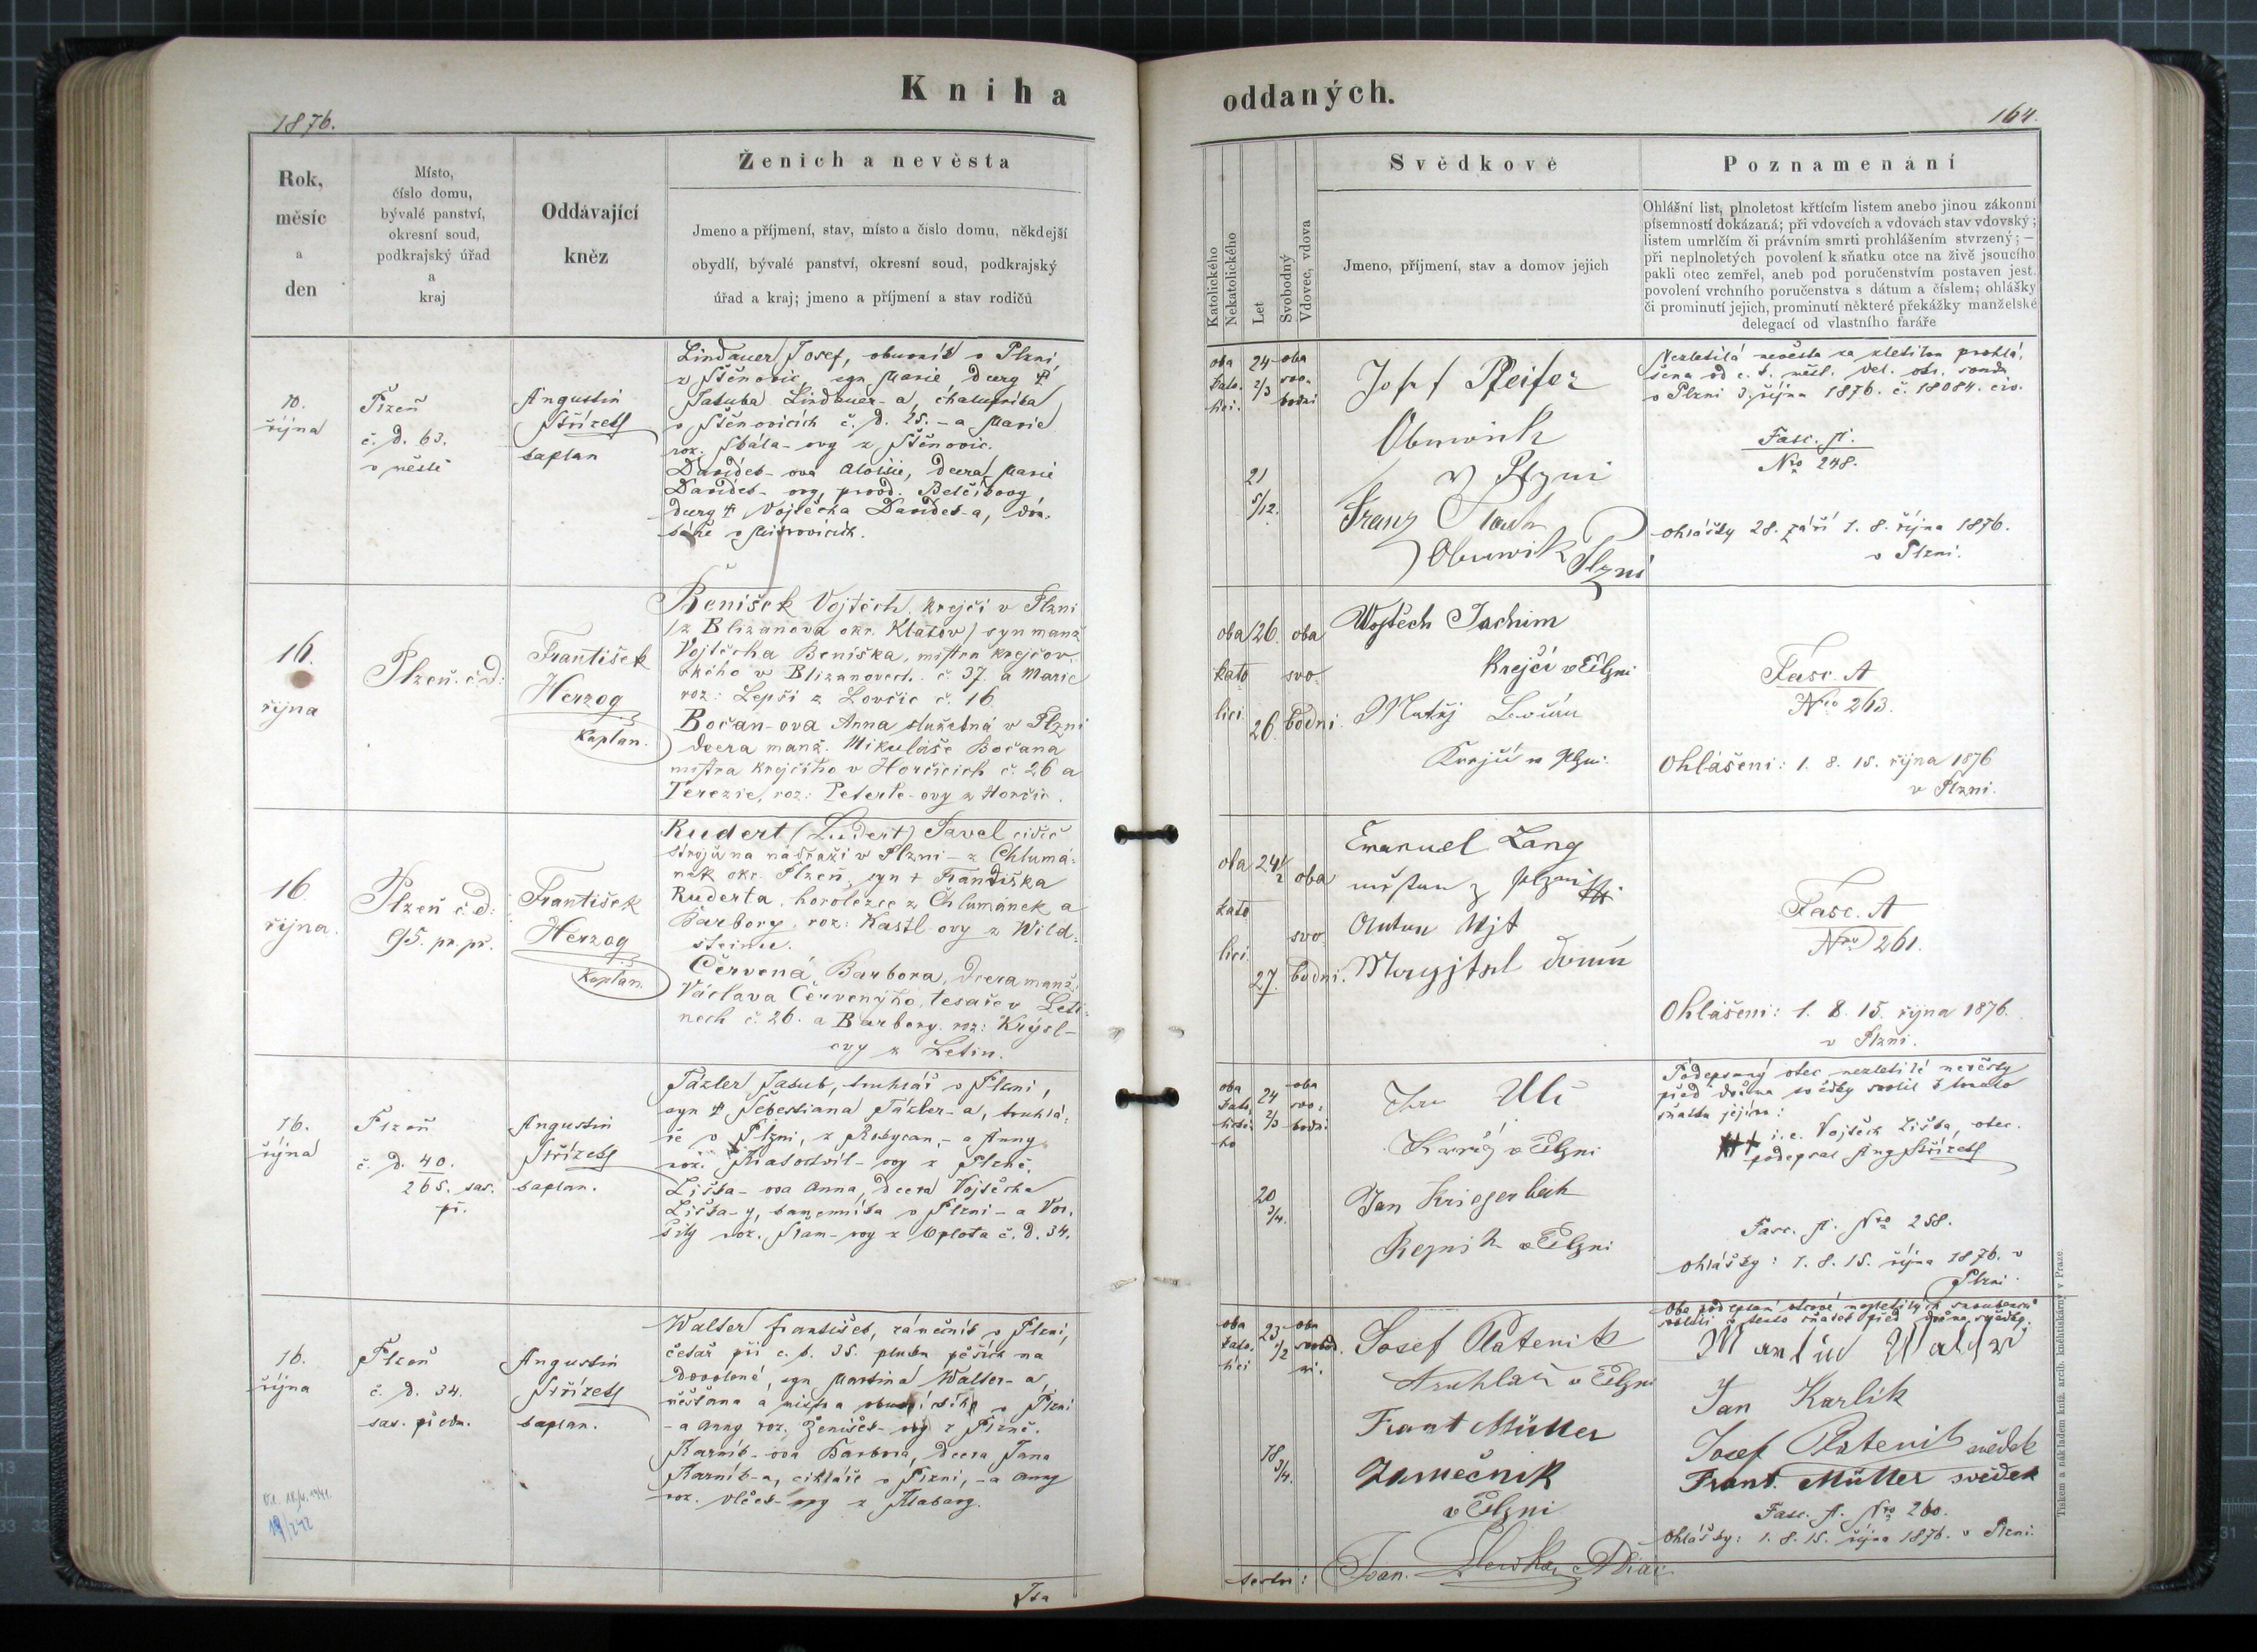 Kniha
oddaných.
1876.
164.
Rok,
měsíc
a
den
Místo,
číslo domu,
bývalé panství,
okresní soud,
podkrajský úřad
a
kraj
Oddávající
kněz
Ženich a nevěsta
Jmeno a příjmení, stav, místo a číslo domu, někdejší
obydlí, bývalé panství, okresní soud, podkrajský
úřad a kraj; jmeno a příjmení a stav rodičů
Katolického
Nekatolického
Let
Svobodný
Vdovec, vdova
Svědkové
Jmeno, příjmení, stav a domov jejich
Poznamenání
Ohlášní list, plnoletost křtícím listem anebo jinou zákonní
písemností dokázaná; při vdovcích a vdovách stav vdovský;
listem umrlčím či právním smrti prohlášením stvrzený; —
při neplnoletých povolení k sňatku otce na živě jsoucího
pakli otec zemřel, aneb pod poručenstvím postaven jest.
povolení vrchního poručenstva s dátum a číslem; ohlášky
či prominutí jejich, prominutí některé překážky manželské
delegací od vlastního faráře
10.
října
Plzeň
č. d. 63.
v městě
Augustin
Střízek
kaplan
Lindauer Josef, obuvník v Plzni,
z Štěnovic, syn Marie, dcery †
Jakuba Lindauer-a, chalupníka
v Štěnovicích č. d. 25. - a Marie
roz. Skála-ovy z Štěnovic.
Davídek-ova Aloisie, dcera Marie
Davídek-ovy,
dcery † Vojtěcha Davídek-a,
v Mitrovicích.
oba
kato-
líci.
24
2/3
oba
svo-
bodni
21
5/12.
Josef Pfeifer
Obuvnik
v Plzni
Franz
Obuwik Plzni
Nezletilá nevěsta za zletilou prohlá-
šena od c. k. měst. del. okr. soudu
v Plzni 3. října 1876. č. 18084. civ.
Fasc. A.
Nro 248.
Ohlášky 28. září 1. 8. října 1876.
v Plzni.
16.
října
Plzeň. č. D:
František
Herzog
Kaplan.
Beníšek Vojtěch, krejčí v Plzni
(z Blizanova okr. Klatov) syn manž.
Vojtěcha Beníška, mistra krejčov-
ského v Blizanovech č. 37. a Marie
roz: Lepší z Lovčic č. 16.
Bočan-ova Anna služebná v Plzni
dcera manž. Mikuláše Bočana
mistra krejčího v Horčicích č. 26 a
Terezie, roz: Peterle-ovy z Horčic.
oba
kato
líci
26.
oba
svo-
bodni.
26.
Wojtěch Jachim
Krejčí v Plzni
Matěj
Krejčí v Plzni.
Fasc. A
Nro 263.
Ohlášeni: 1. 8. 15. října 1876
v Plzni.
16.
října.
Plzeň č. d:
95. pr. př.
František
Herzog
Kaplan.
Rudert (Ludert) Pavel cidič
strojů na nádraží v Plzni - z Chlumá-
nek okr. Plzeň, syn † Františka
Ruderta, horolezce z Chlumánek a
Barbory, roz: Kastl-ovy z Wild-
steinu.
Červená Barbora, dcera manž.
Václava Červenýho, tesaře v Leti-
nech č. 26. a Barbory. roz: Krýsl-
ovy z Letin.
oba
kato
líci.
24 1/2
oba
svo
bodni.
27.
Emanuel Lang
měšťan z Plzni
Anton
domu
Fasc. A
Nro 261.
Ohlášeni: 1. 8. 15. října 1876.
v Plzni.
16.
října
Plzeň
č. d. 40.
265. sas.
př.
Augustin
Střízek
kaplan.
Tázler Jakub, truhlář v Plzni,
syn † Šebestiana Tázler-a, truhlá-
ře v Plzni, z Rokycan, - a Anny
roz. z Plzně.
Liška-ova Anna, dcera Vojtěcha
Liška-y, kameníka v Plzni - a Vor-
šily roz. z Oplota č. d. 34.
oba
24
2/3
oba
svo-
bodni
20
3/4.
Jan
v Plzni
Jan Kriegerbeck
Reznik v Plzni
Podepsaný otec nezletilé nevěsty
před dvěma svědky svolil k tomuto
sňatku jejímu:
††† i. e. Vojtěch Liška, otec.
podepsal Aug. Střízek
Fasc. A. Nro 258.
Ohlášky: 1. 8. 15. října 1876. v
Plzni.
16.
října
Plzeň
č. d. 34.
sas. předm.
Augustin
Střízek
kaplan.
Walter František, zámečník v Plzni,
četař při c. k. 35. pluku pěších na
dovolené, syn Martina Walter-a,
měšťana a mistra obuvnického v Plzni
- a Anny roz. Ženíšek-ovy z Plzně.
Karník-ova Barbora, dcera Jana
Karník-a, cihláře v Plzni, - a Anny
roz. Vlček-ovy z Klabavy.
oba
kato-
líci
23
1/2
oba
svobod-
ni.
18
3/4.
Josef Platenik
truhlář v Plzni
Frant Müller
Zamečnik
v Plzni
Oba podepsaní otcové nezletilých snoubenců
svolili k tento sňatek před dvěma svědky.
Martin Walter
Jan Karlík
Josef Platenik svědek
Frant. Müller svědek
Fasc. A. Nro 260.
Ohlášky: 1. 8. 15. října 1876. v Plzni.
Tiskem a nákladem kníž. arcib. knihtiskárny v Praze.